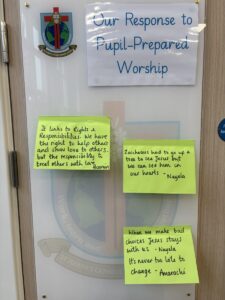 Our Response to
Pupil-Prepared
Worship
It links to Rights &
Responsibilities. We have
the right to help others
and show love to others,
but the responsibility to
treat others with care.
Zacchaeus had to go up a
tree to see Jesus but
we can see him in
our hearts - Nayela
When we make bad
choices Jesus stays
with us. - Nayela
It's never too late to
change - Amarachi